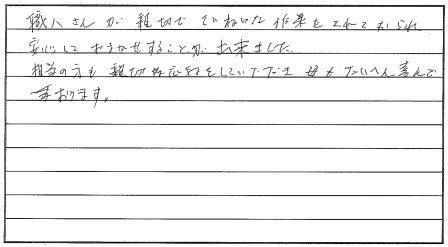 職人さんが親切でていねいな作業をされておられ
安心しておまかせすることが出来ました。
担当の方も親切な応対をしていただき 母も たいへん喜んで
おります。